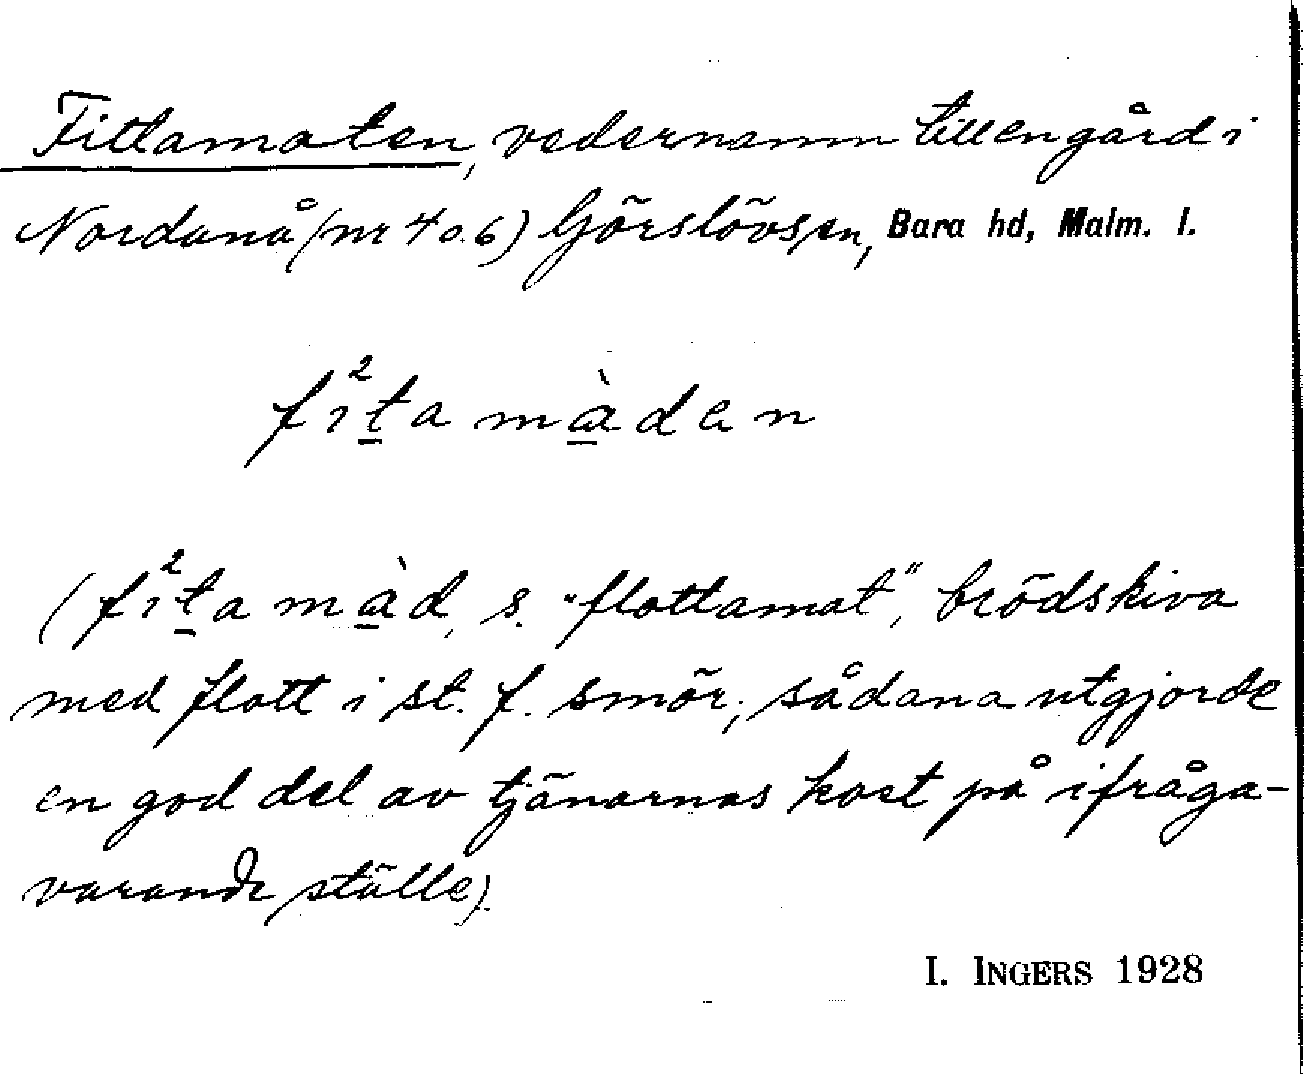 Fittamaten, vedernamn till en gård i
Nordanå (nr 4 o. 6) Görslövs sn, Bara hd, Malm. l.
fi²ṯa mà̱den
(fi²ṯa mà̱d, s. "flottamat", brödskiva
med flott i st. f. smör; sådana utgjorde
en god del av tjänarnas kost på ifråga-
varande ställe).
I. INGERS 1928